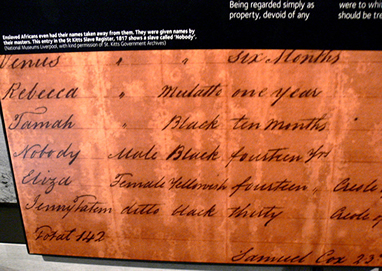 Being regarded simply as
property, devoid of any
were to wh
should be tre
Enslaved Africans even had their names taken away from them. They were given names by
their masters. This entry in the St Kitts Slave Register, 1817 shows a slave called 'Nobody'.
(National Museums Liverpool, with kind permission of St. Kitts Government Archives)
Venus " " six Months
Rebecca " Mulatto one year
Tamah " Black ten Months "
Nobody Male Black fourteen Yrs
Eliza Female Yellowish fourteen " Creole
Jenny Tatem ditto black thirty Creole
Total 142
Samuel Cox 23